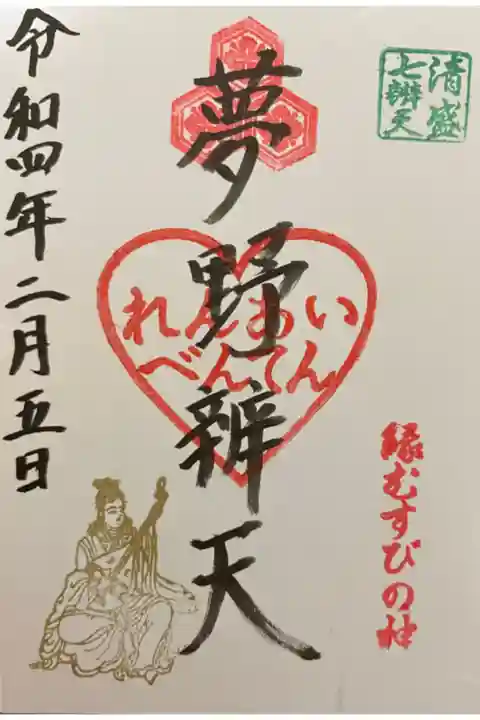 清盛
七辨天
夢野辨天
れんあい
べんてん
縁むすびの神
令和四年二月五日